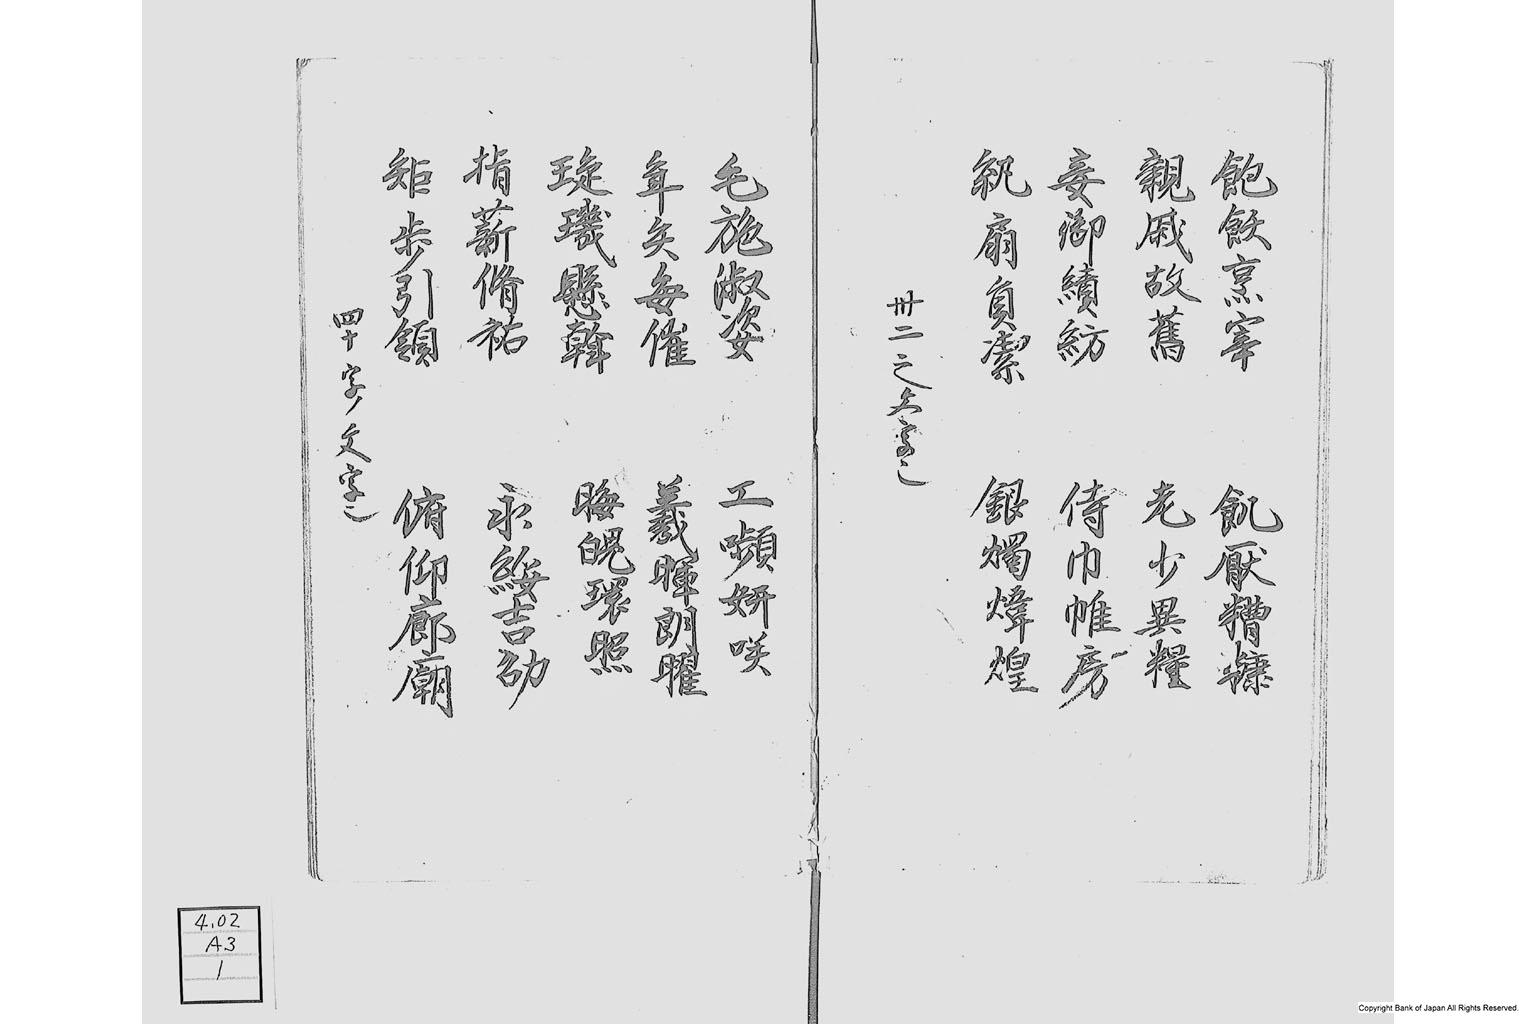 飽飫烹宰 飢厭糟糠
親戚故舊 老少異糧
妾御績紡 侍巾帷房
紈扇員潔 銀燭煒煌
卅二之文字也
毛施淑姿 工嚬妍咲
年矢每催 羲暉朗曜
琁璣懸斡 晦魄環照
指薪脩祐 永綏吉劭
矩步引領 俯仰廊廟
四十字ノ文字也
4.02
A3
1
Copyright Bank of Japan All Rights Reserved.